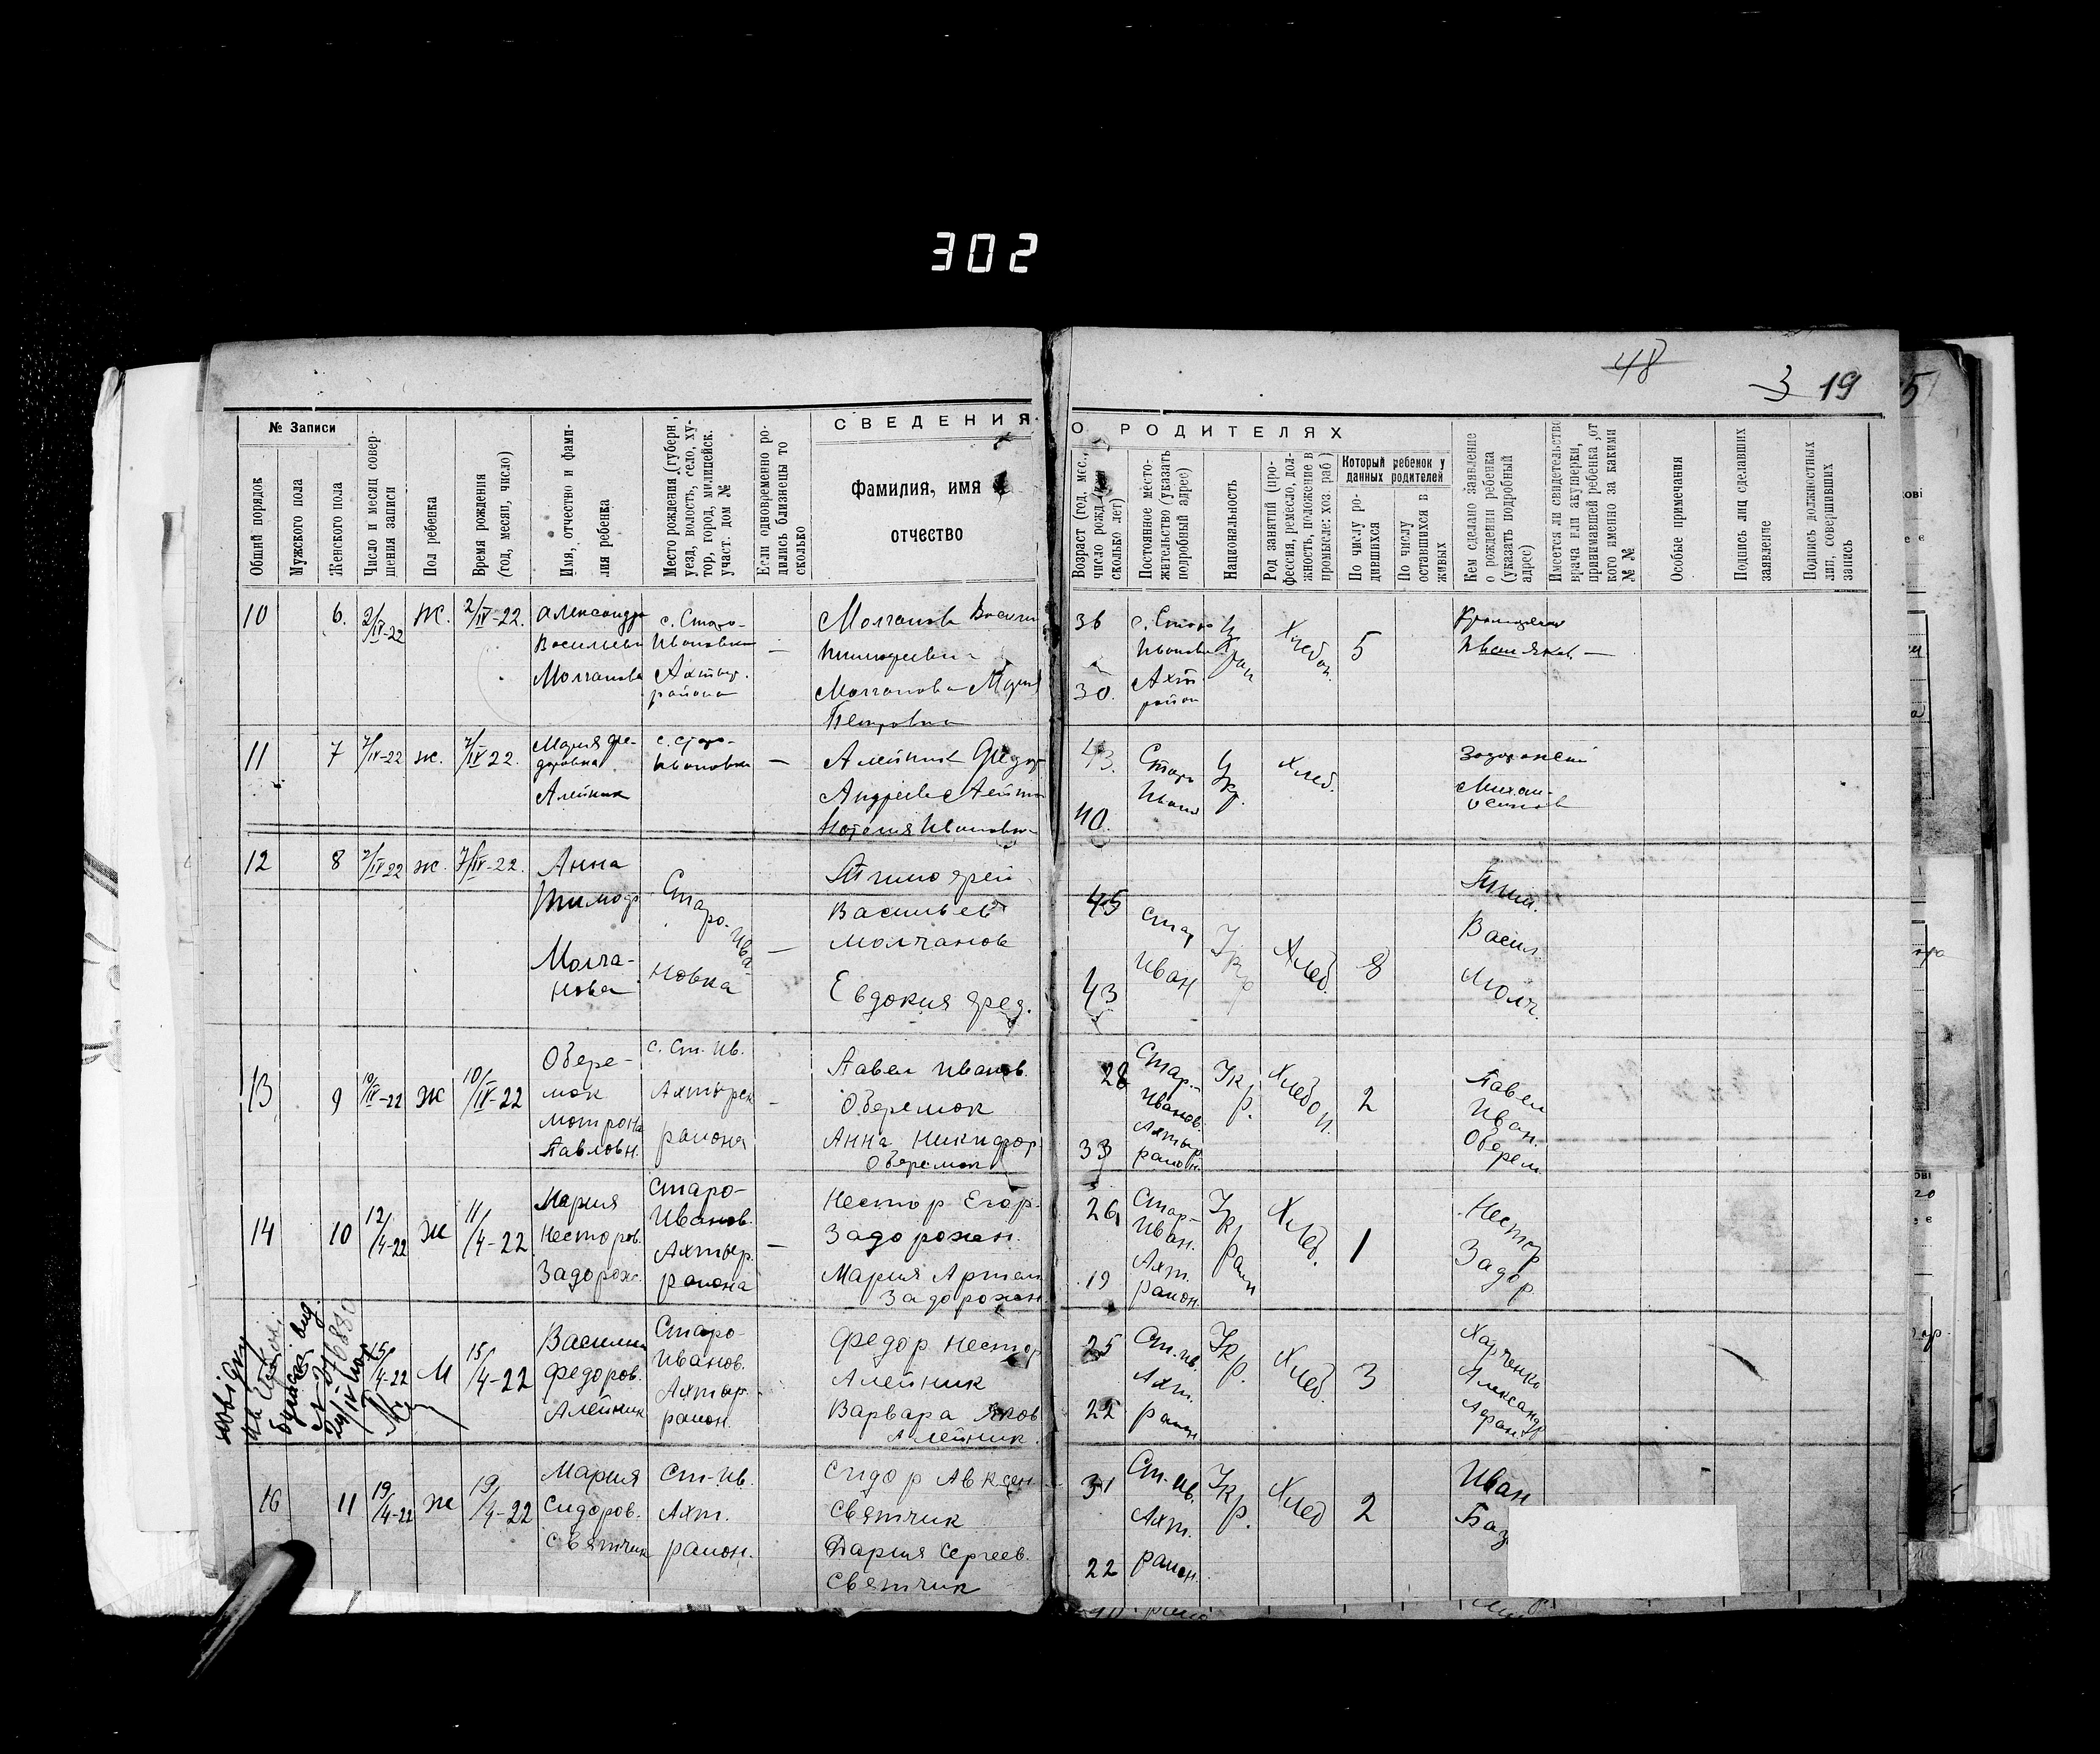 302
48
3 19
5
СВЕДЕНИЯ О РОДИТЕЛЯХ
№ Записи
Общий порядок
Мужского пола
Женского пола
Число и месяц совер-
шения записи
Пол ребенка
Время рождения
(год, месяц, число)
Имя, отчество и фами-
лия ребенка
Место рождения (губерн.
уезд, волость, село, ху-
тор, город, милицейск.
участ. дом №
Если одновременно ро-
дились близнецы то
сколько
Фамилия, имя и
отчество
Возраст (год, мес.,
число рожд.
сколько лет)
Постоянное место-
жительство (указать
подробный адрес)
Национальность
Род занятий (про-
фессия, ремесло, дол-
жность, положение в
промысле: хоз. раб)
Который ребенок у
данных родителей
По числу ро-
дившихся
По числу
оставшихся в
живых
Кем сделано заявление
о рождении ребенка
(указать подробный
адрес)
Имеется ли свидетельство
врача или акушерки,
принимавшей ребенка, от
кого именно за какими
№ №
Особые примечания
Подпись лиц сделавших
заявление
Подпись должностных
лиц, совершивших
запись
10
6.
2/IV-22
Ж.
2/IV-22.
Александра
Васильевн
Молчанова
с. Старо-
Ивановка
Ахтыр.
района
—
Молчанов Васили
Тимофеевич
Молчанова Мария
Петровна
36
30.
с. Старо
Ивановка
Ахт
район
Хлебоп.
5
Иван Яков.
11
7
7/IV-22
ж.
7/IV 22.
Мария Фе-
доровна
Алейник
с. Старо-
Ивановка
—
Алейник Федор
Андреев Алейни
Наталия Ивановна
43.
40.
Старо
Ивано
Укр.
Хлеб.
Михаи
Осипов
12
8
7/IV 22
ж.
7/IV-22.
Анна
Тимоф
Молча-
нова
Старо-Ива-
новка
—
Тимофей
Васильев
Молчанов
Евдокия Фед.
45
43
Стар
Иван
Укр
Хлеб.
8
Тим.
Васил.
Молч.
13
9
10/IV-22
Ж
10/IV-22
Овере-
мок
Мотрона
Павловн.
с. Ст. Ив.
Ахтырск
района
—
Павел Иванов.
Оверемок
Анна Никифор.
Оверемок
28
33
Стар.-
Иванов.
Ахтыр
район
Укр.
Хлебоп.
2
Павел
Иван.
Оверем
14
10
12/4-22
Ж
11/4-22.
Мария
Несторов.
Задорож.
Старо-
Иванов.
Ахтыр.
района
—
Нестор Егор.
Задорожн.
Мария Артам
Задорожн.
26
19
Стар-
Иван.
Ахт.
район.
Хлеб.
1
Нестор
Задор
15/4-22
М
15/4-22
Василий
Федоров.
Алейник
Старо-
Иванов.
Ахтыр.
район.
Федор Нестор
Алейник
Варвара Яков
Алейник.
25
22
Ст.-Ив.
Ахт.
район
Укр.
Хлеб
3
Харченко
Александр
16
11
19/4-22
Ж
19/4-22
Мария
Сидоров.
Святчик
Ст-Ив.
Ахт.
район.
Сидор Авксен
Святчик
Дария Сергеев.
Святчик
31
22
Ст.-Ив.
Ахт.
район.
Укр.
Хлеб
2
Иван
Баз